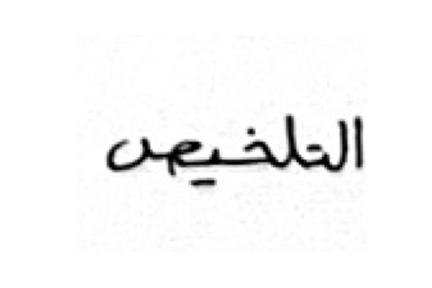 التلخيص